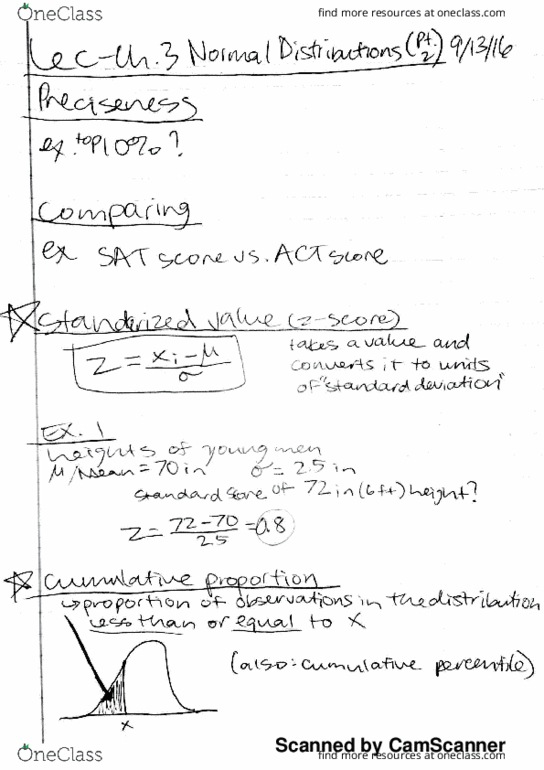 OneClass
find more resources at oneclass.com
Lec-Ch.3 Normal Distributions (Pt. 2) 9/13/16
Preciseness
ex. top 10%?
Comparing
ex SAT score vs. ACT score
Standerized value (z-score)
z = xi-μ / σ
takes a value and
converts it to units
of "standard deviation"
EX. 1
heights of young men
μ/Mean = 70 in σ = 2.5 in
standard score of 72 in (6ft) height?
z = 72-70 / 2.5 = 0.8
cumulative proportion
↳ proportion of observations in the distribution
less than or equal to x
(also: cumulative percentile)
x
Scanned by CamScanner
OneClass
find more resources at oneclass.com